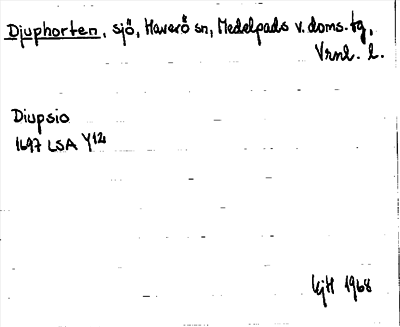 Djuphorten, sjö, Haverö sn, Medelpads v. doms. tg,
Vrnl. l.
Diupsio
1697 LSA Y12
KjH 1968